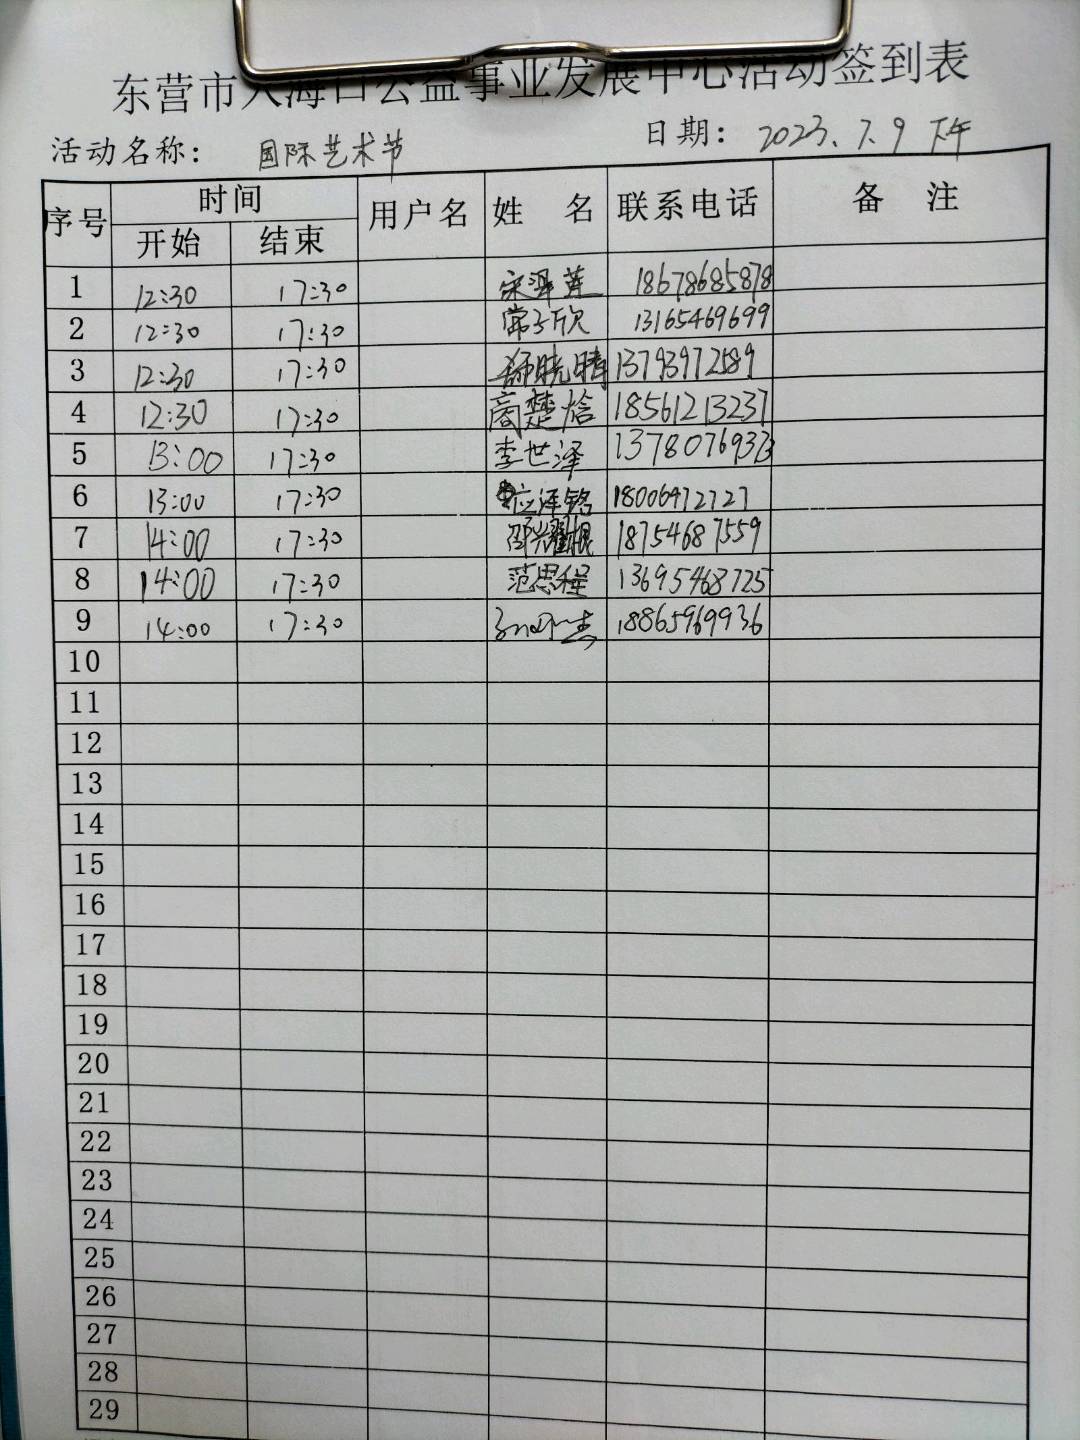 东营市入海口公益事业发展中心活动签到表
活动名称： 国际艺术节 日期： 2023.7.9 下午
序号 时间 用户名 姓 名 联系电话 备 注
开始 结束
1 12:30 17:30 宋泽莲 18678685878
2 12:30 17:30 常子欣 13165469699
3 12:30 17:30 晓晴 13793972589
4 12:30 17:30 周楚焓 18561213237
5 13:00 17:30 李世泽 13780769373
6 13:00 17:30 应泽铭 18006472727
7 14:00 17:30 邵耀棍 18754687559
8 14:00 17:30 范思程 13695468725
9 14:00 17:30 18865969936
10
11
12
13
14
15
16
17
18
19
20
21
22
23
24
25
26
27
28
29